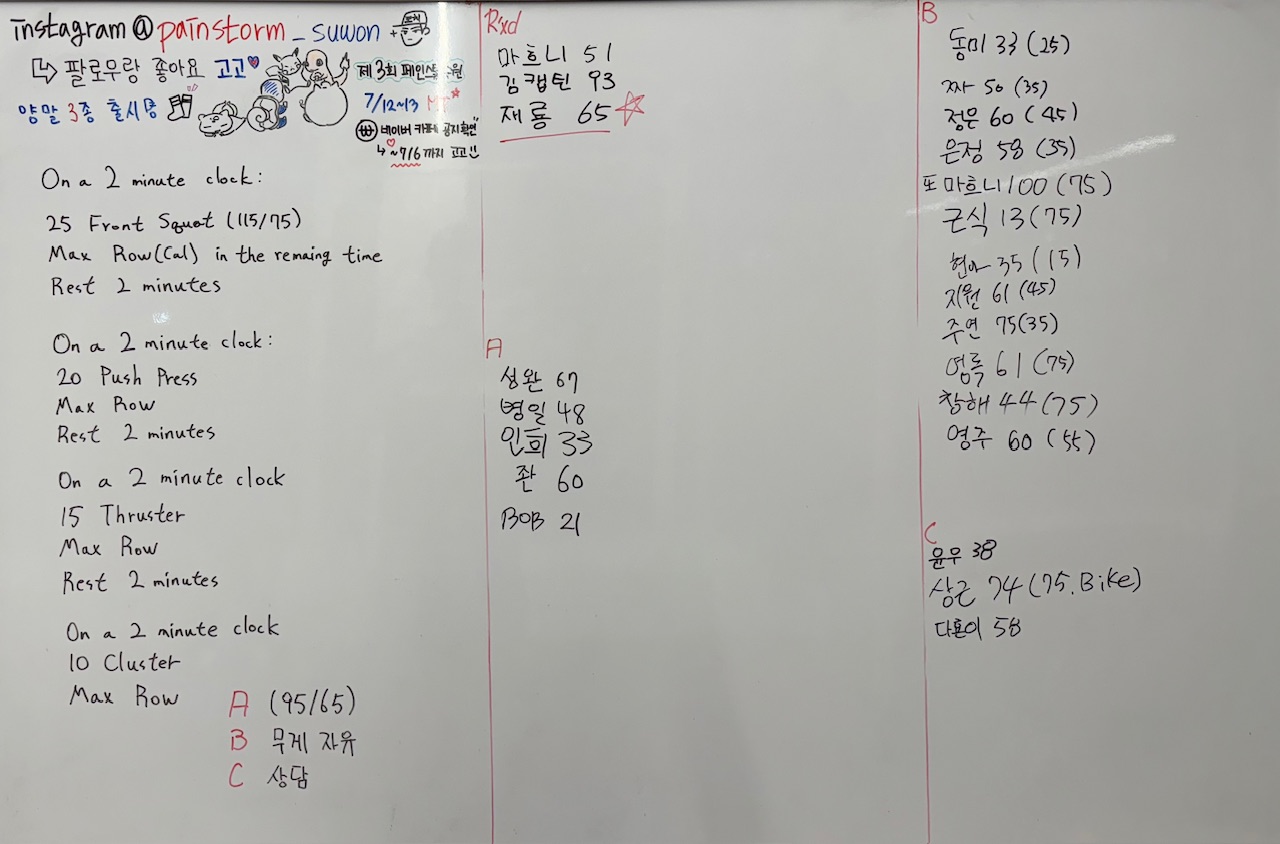 instagram@painstorm_suwon +코치
팔로우랑 좋아요 고고
양말 3종 출시중
제3회 페인스톰수원
7/12~13 MT
네이버 카페 공지확인
~7/6까지 고고!!
On a 2 minute clock:
25 Front Squat (115/75)
Max Row(Cal) in the remaing time
Rest 2 minutes
On a 2 minute clock:
20 Push Press
Max Row
Rest 2 minutes
On a 2 minute clock
15 Thruster
Max Row
Rest 2 minutes
On a 2 minute clock
10 Cluster
Max Row
A (95/65)
B 무게 자유
C 상담
Rxd
마흐니 51
김캡틴 93
재룡 65
A
성완 67
병일 48
인희 33
좐 60
BOB 21
B
동미 33 (25)
짜 50 (35)
정문 60 (45)
은정 58 (35)
또 마흐니 100 (75)
근식 13 (75)
현아 35 (15)
지원 61 (45)
주연 75(35)
영록 61 (75)
창해 44 (75)
영주 60 (55)
C
윤우 38
상근 74 (75.Bike)
다훈이 58